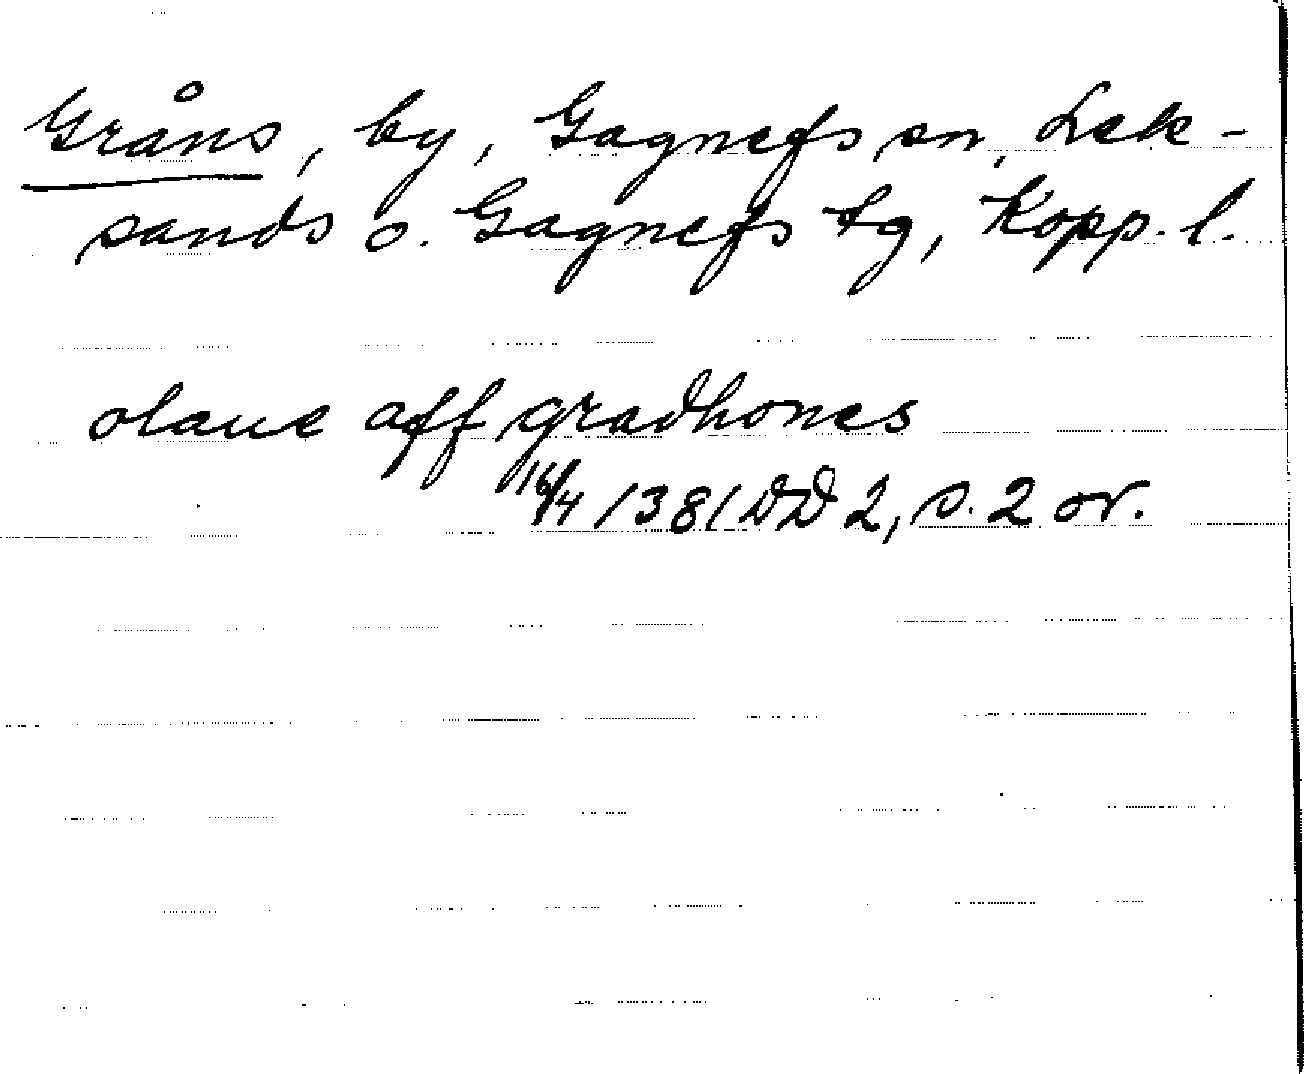 Gråns, by, Gagnefs sn, Lek-
sands o. Gagnefs tg, Kopp. l.
olaue aff gradhones
16/4 1381 DD 2, s. 2 or.